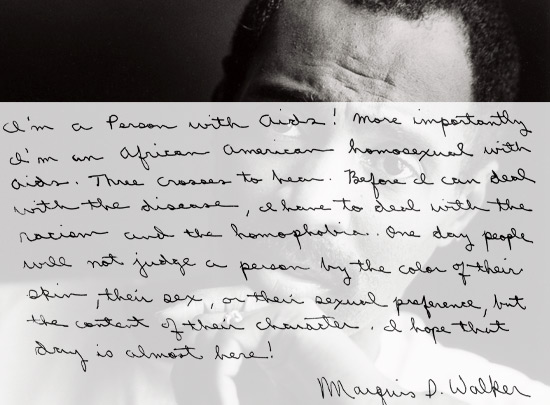 I'm a Person with Aids! More importantly
I'm an African American homosexual with
Aids. Three crosses to bear. Before I can deal
with the disease, I have to deal with the
racism and the homophobia. One day people
will not judge a person by the color of their
skin, their sex, or their sexual preference, but
the content of their character. I hope that
day is almost here!
Marquis D. Walker